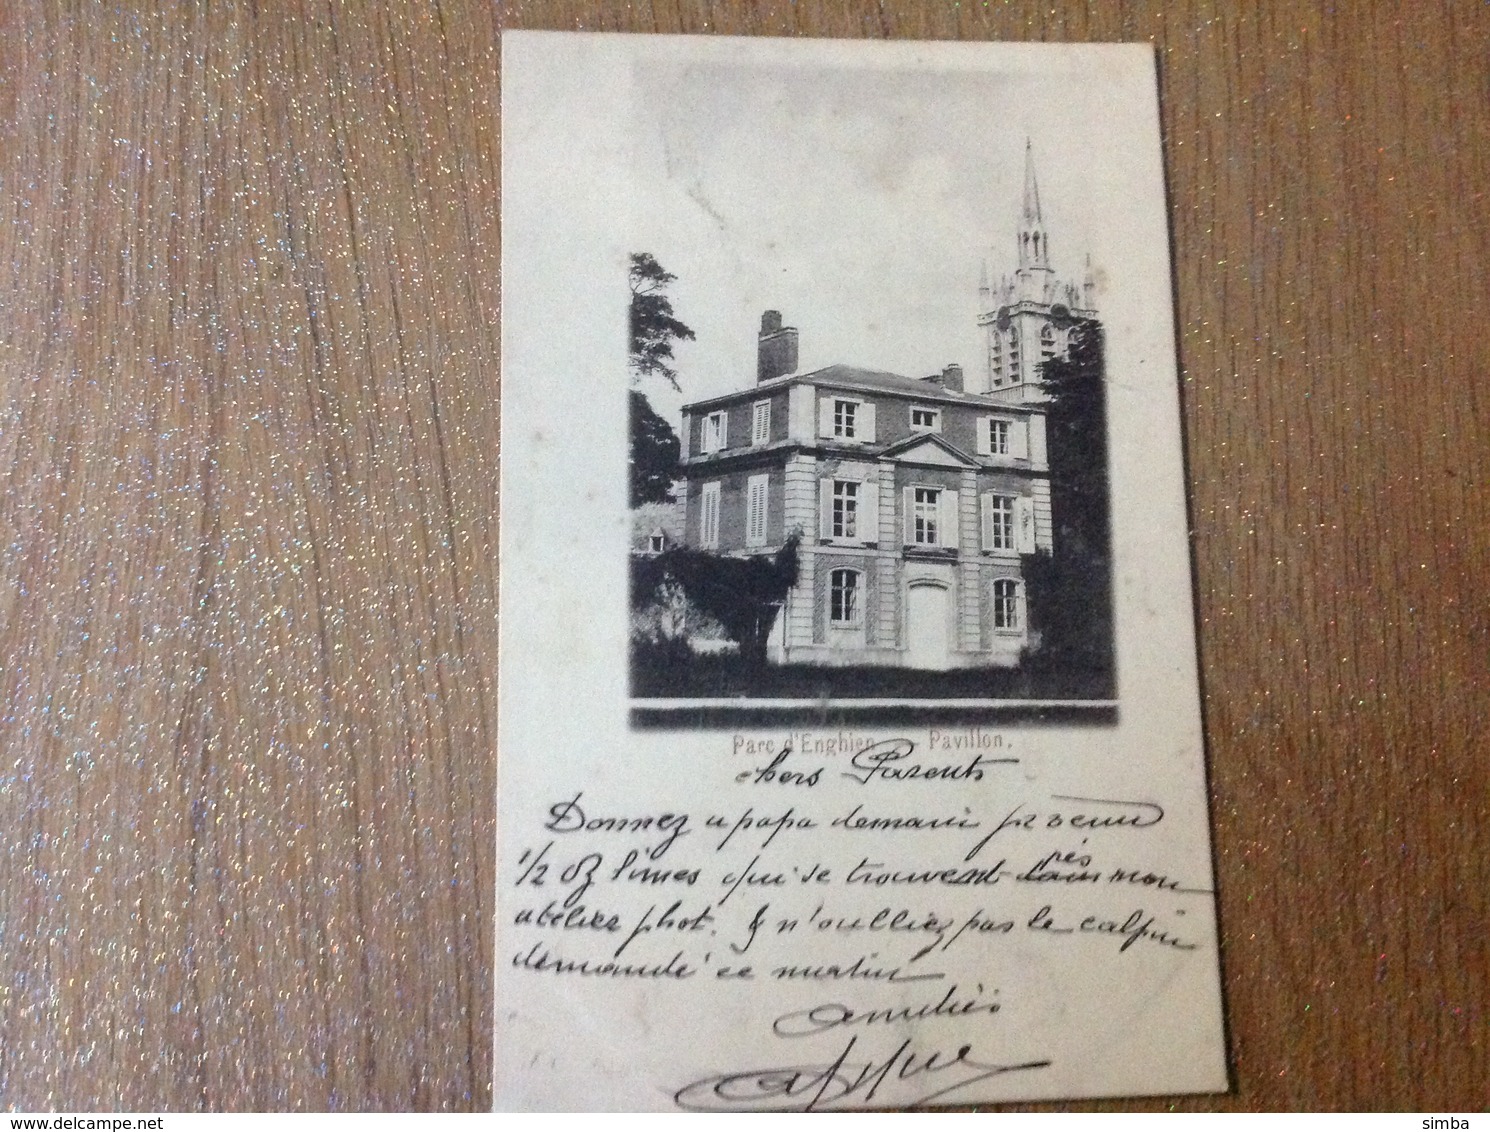 Parc d'Enghien — Pavillon.
chers Parents
Donnez a papa demain
1/2 dz limes qui se trouvent près mon
atelier phot. & n'oubliez pas le calpin
demandé ce matin
www.delcampe.net
simba